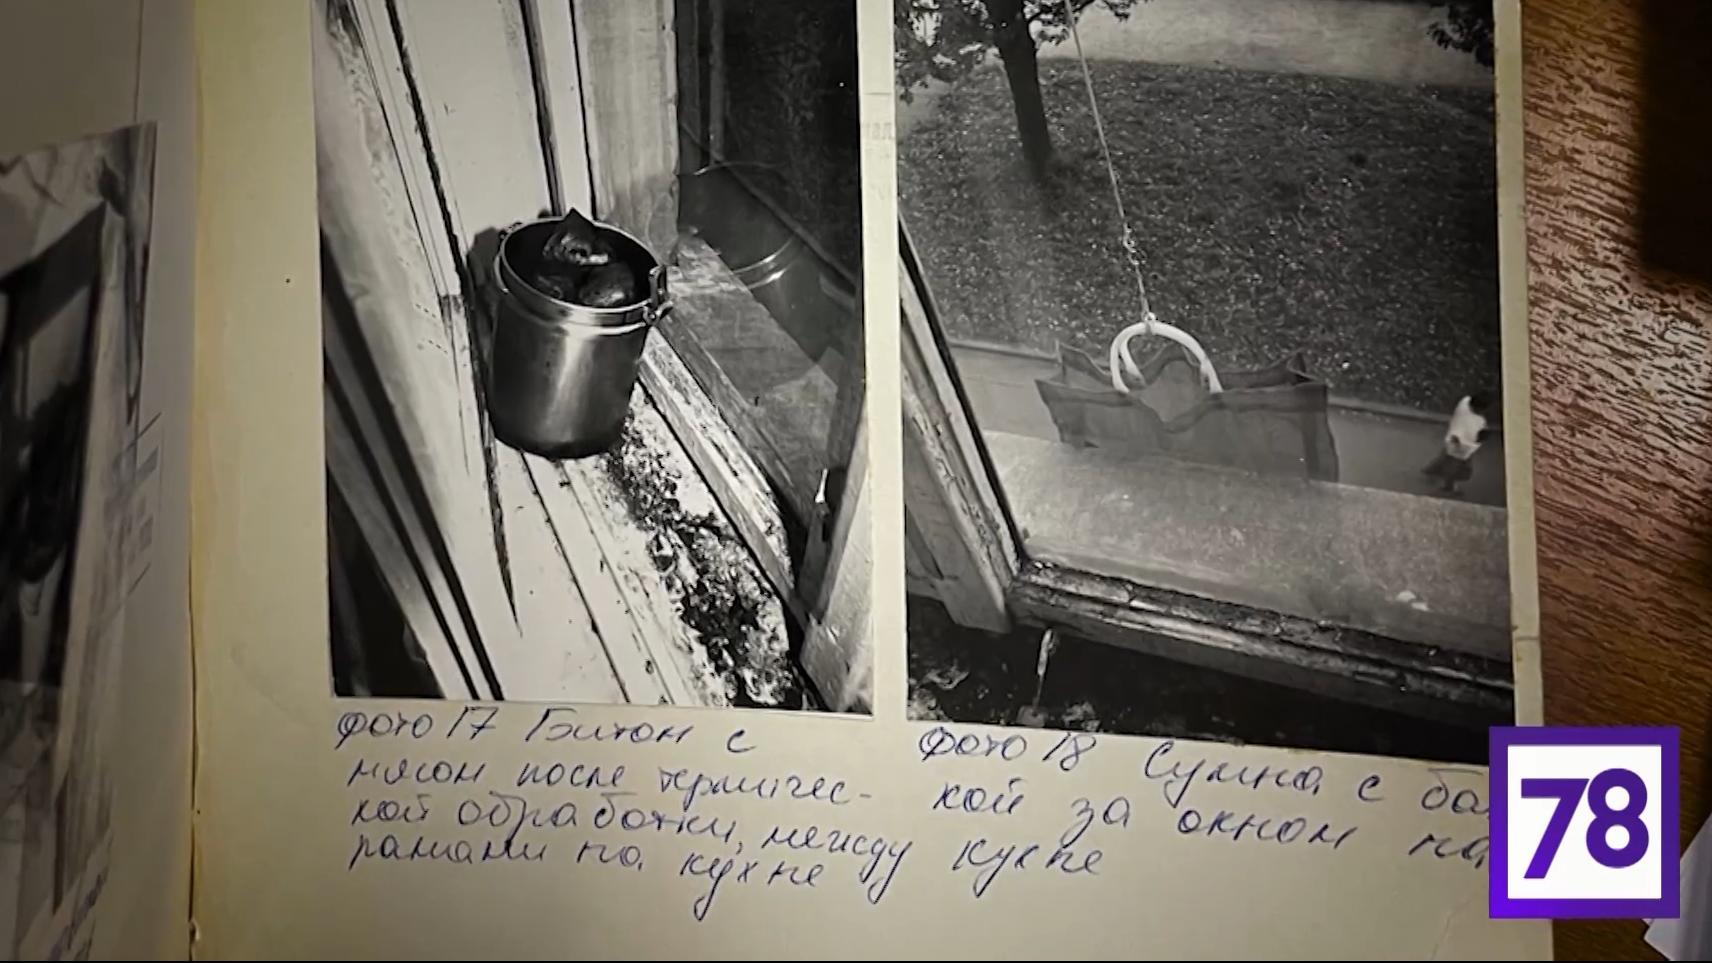 фото 17 Битон с
мясом после термичес-
кой обработки, между
рамами на кухне
фото 18 Сумка с ба
кой за окном на
кухне
78